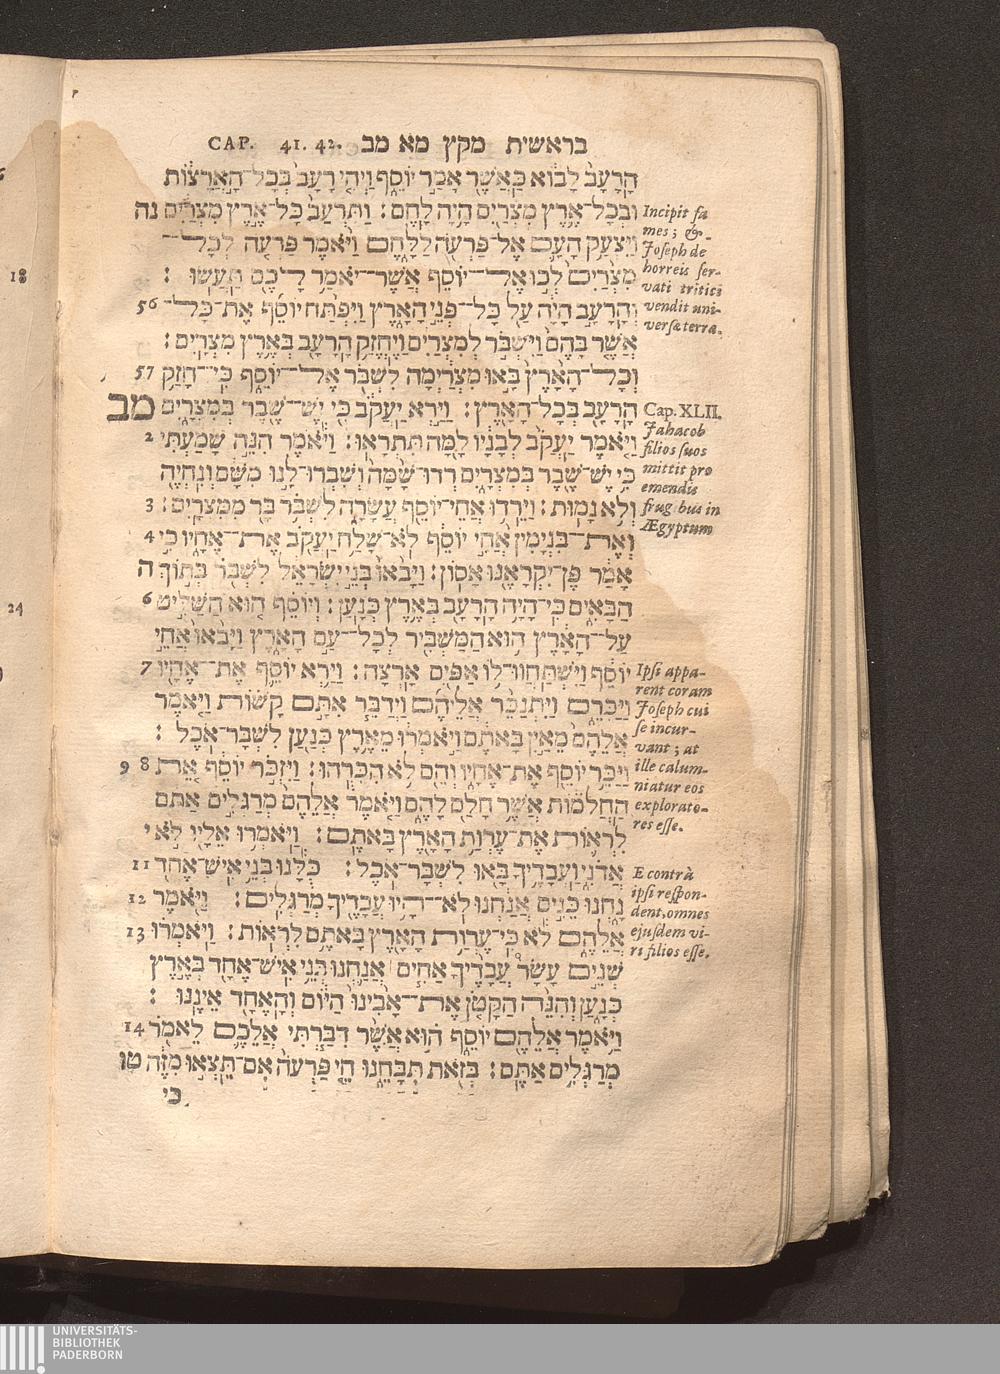 בראשית מקץ מא מב CAP. 41. 42.
הָרָעָב֙ לָב֔וֹא כַּאֲשֶׁ֖ר אָמַ֣ר יוֹסֵ֑ף וַיְהִ֤י רָעָב֙ בְּכָל־הָ֣אֲרָצ֔וֹת
וּבְכָל־אֶ֥רֶץ מִצְרַ֖יִם הָ֥יָה לָֽחֶם׃ וַתִּרְעַב֙ כָּל־אֶ֣רֶץ מִצְרַ֔יִם נה
וַיִּצְעַ֥ק הָעָ֛ם אֶל־פַּרְעֹ֖ה לַלָּ֑חֶם וַיֹּ֨אמֶר פַּרְעֹ֤ה לְכָל־
מִצְרַ֙יִם֙ לְכ֣וּ אֶל־יוֹסֵ֔ף אֲשֶׁר־יֹאמַ֥ר לָכֶ֖ם תַּעֲשֽׂוּ׃
וְהָרָעָ֣ב הָיָ֔ה עַ֖ל כָּל־פְּנֵ֣י הָאָ֑רֶץ וַיִּפְתַּ֨ח יוֹסֵ֜ף אֶֽת־כָּל־ 56
אֲשֶׁ֤ר בָּהֶם֙ וַיִּשְׁבֹּ֣ר לְמִצְרַ֔יִם וַיֶּחֱזַ֥ק הָֽרָעָ֖ב בְּאֶ֥רֶץ מִצְרָֽיִם׃
וְכָל־הָאָ֙רֶץ֙ בָּ֣אוּ מִצְרַ֔יְמָה לִשְׁבֹּ֖ר אֶל־יוֹסֵ֑ף כִּֽי־חָזַ֥ק 57
הָרָעָ֖ב בְּכָל־הָאָֽרֶץ׃ וַיַּ֣רְא יַעֲקֹ֔ב כִּ֥י יֶשׁ־שֶׁ֖בֶר בְּמִצְרָ֑יִם מב
וַיֹּ֤אמֶר יַעֲקֹב֙ לְבָנָ֔יו לָ֖מָּה תִּתְרָאֽוּ׃ וַיֹּ֕אמֶר הִנֵּ֣ה שָׁמַ֔עְתִּי 2
כִּ֥י יֶשׁ־שֶׁ֖בֶר בְּמִצְרָ֑יִם רְדוּ־שָׁ֙מָּה֙ וְשִׁבְרוּ־לָ֣נוּ מִשָּׁ֔ם וְנִחְיֶ֖ה
וְלֹ֥א נָמֽוּת׃ וַיֵּרְד֥וּ אֲחֵֽי־יוֹסֵ֖ף עֲשָׂרָ֑ה לִשְׁבֹּ֥ר בָּ֖ר מִמִּצְרָֽיִם׃ 3
וְאֶת־בִּנְיָמִין֙ אֲחִ֣י יוֹסֵ֔ף לֹא־שָׁלַ֥ח יַעֲקֹ֖ב אֶת־אֶחָ֑יו כִּ֣י 4
אָמַ֔ר פֶּן־יִקְרָאֶ֖נּוּ אָסֽוֹן׃ וַיָּבֹ֙אוּ֙ בְּנֵ֣י יִשְׂרָאֵ֔ל לִשְׁבֹּ֖ר בְּת֣וֹךְ ה
הַבָּאִ֑ים כִּֽי־הָיָ֥ה הָרָעָ֖ב בְּאֶ֥רֶץ כְּנָֽעַן׃ וְיוֹסֵ֗ף ה֚וּא הַשַּׁלִּ֣יט 6
עַל־הָאָ֔רֶץ ה֥וּא הַמַּשְׁבִּ֖יר לְכָל־עַ֣ם הָאָ֑רֶץ וַיָּבֹ֙אוּ֙ אֲחֵ֣י
יוֹסֵ֔ף וַיִּשְׁתַּֽחֲווּ־ל֥וֹ אַפַּ֖יִם אָֽרְצָה׃ וַיַּ֥רְא יוֹסֵ֛ף אֶת־אֶחָ֖יו 7
וַיַּכִּרֵ֑ם וַיִּתְנַכֵּ֨ר אֲלֵיהֶ֜ם וַיְדַבֵּ֧ר אִתָּ֣ם קָשׁ֗וֹת וַיֹּ֤אמֶר
אֲלֵהֶם֙ מֵאַ֣יִן בָּאתֶ֔ם וַיֹּ֣אמְר֔וּ מֵאֶ֥רֶץ כְּנַ֖עַן לִשְׁבָּר־אֹֽכֶל׃
וַיַּכֵּ֥ר יוֹסֵ֖ף אֶת־אֶחָ֑יו וְהֵ֖ם לֹ֥א הִכִּרֻֽהוּ׃ וַיִּזְכֹּ֣ר יוֹסֵ֔ף אֵ֚ת 8 9
הַחֲלֹמ֔וֹת אֲשֶׁ֥ר חָלַ֖ם לָהֶ֑ם וַיֹּ֤אמֶר אֲלֵהֶם֙ מְרַגְּלִ֣ים אַתֶּ֔ם
לִרְא֛וֹת אֶת־עֶרְוַ֥ת הָאָ֖רֶץ בָּאתֶֽם׃ וַיֹּאמְר֥וּ אֵלָ֖יו לֹ֣א י
אֲדֹנִ֑י וַעֲבָדֶ֥יךָ בָּ֖אוּ לִשְׁבָּר־אֹֽכֶל׃ כֻּלָּ֕נוּ בְּנֵ֥י אִישׁ־אֶחָ֖ד 11
נָ֑חְנוּ כֵּנִ֣ים אֲנַ֔חְנוּ לֹא־הָי֥וּ עֲבָדֶ֖יךָ מְרַגְּלִֽים׃ וַיֹּ֖אמֶר 12
אֲלֵהֶ֑ם לֹ֕א כִּֽי־עֶרְוַ֥ת הָאָ֖רֶץ בָּאתֶ֥ם לִרְאֽוֹת׃ וַיֹּאמְר֗וּ 13
שְׁנֵ֣ים עָשָׂר֩ עֲבָדֶ֨יךָ אַחִ֧ים אֲנַ֛חְנוּ בְּנֵ֥י אִישׁ־אֶחָ֖ד בְּאֶ֣רֶץ
כְּנָ֑עַן וְהִנֵּ֨ה הַקָּטֹ֤ן אֶת־אָבִ֙ינוּ֙ הַיּ֔וֹם וְהָאֶחָ֖ד אֵינֶֽנּוּ׃
וַיֹּ֥אמֶר אֲלֵהֶ֖ם יוֹסֵ֑ף ה֗וּא אֲשֶׁ֨ר דִּבַּ֧רְתִּי אֲלֵכֶ֛ם לֵאמֹ֖ר 14
מְרַגְּלִ֥ים אַתֶּֽם׃ בְּזֹ֖את תִּבָּחֵ֑נוּ חֵ֤י פַרְעֹה֙ אִם־תֵּצְא֣וּ מִזֶּ֔ה טו
כי
Incipit fa
mes; &
Joseph de
horreis ser-
vati tritici
vendit uni-
versæ terræ.
Cap. XLII.
Jahacob
filios suos
mittit pro
emendis
frugibus in
Ægyptum
Ipsi appa-
rent coram
Joseph cui
se incur-
vant; at
ille calum-
niatur eos
explorato-
res esse.
E contrà
ipsi respon-
dent, omnes
ejusdem vi-
ri filios esse.
18
24
UNIVERSITÄTS-
BIBLIOTHEK
PADERBORN